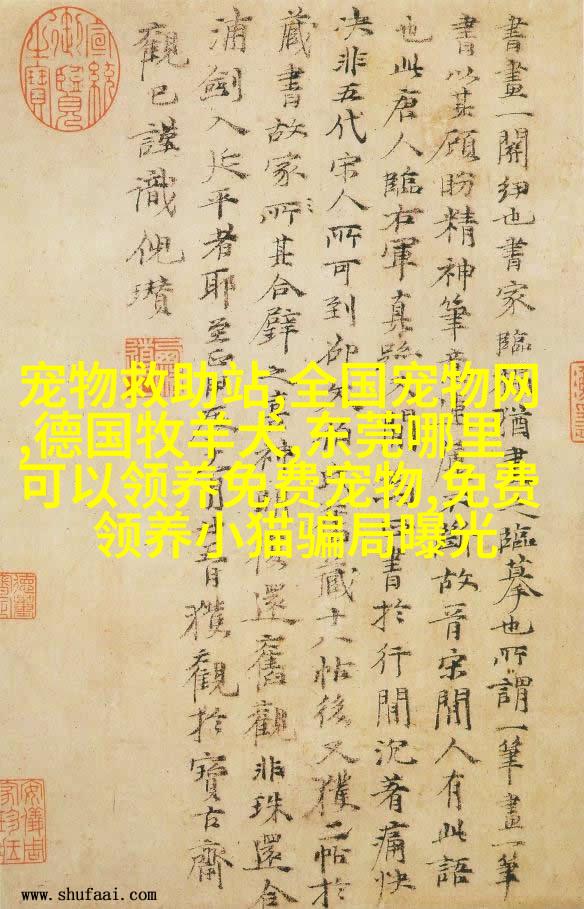 宣統御覽之寶
書畫一關紐也書家臨猶畫之臨摹也所謂一筆畫一筆
書以其顧盼精神筆故晉宋間人有此語
也此唐人臨右軍真書於行間沉著痛快
決非五代宋人所可到卻藏十八帖後又獲二帖於
藏書故家所其合璧之神還舊觀非珠還合
浦劍入延平者耶至有獲觀於寶古齋
觀已謹識倪瓚
宠物救助站,全国宠物网
,德国牧羊犬,东莞哪里
可以领养免费宠物,免费
领养小猫骗局曝光
www.shufaai.com